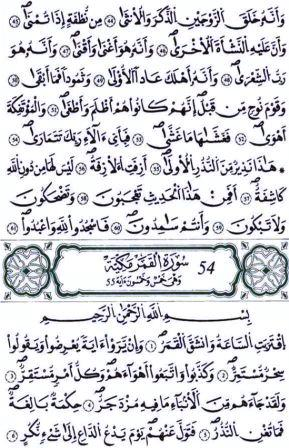 وَأَنَّهُ خَلَقَ الزَّوْجَيْنِ الذَّكَرَ وَالْأُنثَىٰ ٤٥ مِن نُّطْفَةٍ إِذَا تُمْنَىٰ ٤٦
وَأَنَّ عَلَيْهِ النَّشْأَةَ الْأُخْرَىٰ ٤٧ وَأَنَّهُ هُوَ أَغْنَىٰ وَأَقْنَىٰ ٤٨ وَأَنَّهُ هُوَ
رَبُّ الشِّعْرَىٰ ٤٩ وَأَنَّهُ أَهْلَكَ عَادًا الْأُولَىٰ ٥٠ وَثَمُودَا فَمَا أَبْقَىٰ ٥١
وَقَوْمَ نُوحٍ مِّن قَبْلُ إِنَّهُمْ كَانُوا هُمْ أَظْلَمَ وَأَطْغَىٰ ٥٢ وَالْمُؤْتَفِكَةَ
أَهْوَىٰ ٥٣ فَغَشَّاهَا مَا غَشَّىٰ ٥٤ فَبِأَيِّ آلَاءِ رَبِّكَ تَتَمَارَىٰ ٥٥
هَٰذَا نَذِيرٌ مِّنَ النُّذُرِ الْأُولَىٰ ٥٦ أَزِفَتِ الْآزِفَةُ ٥٧ لَيْسَ لَهَا مِن دُونِ اللَّهِ
كَاشِفَةٌ ٥٨ أَفَمِنْ هَٰذَا الْحَدِيثِ تَعْجَبُونَ ٥٩ وَتَضْحَكُونَ
وَلَا تَبْكُونَ ٦٠ وَأَنتُمْ سَامِدُونَ ٦١ فَاسْجُدُوا لِلَّهِ وَاعْبُدُوا
54 سُورَةُ الْقَمَرِ مَكِّيَّةٌ
وَهِيَ خَمْسٌ وَخَمْسُونَ آيَةً 55
بِسْمِ اللَّهِ الرَّحْمَٰنِ الرَّحِيمِ
اقْتَرَبَتِ السَّاعَةُ وَانشَقَّ الْقَمَرُ ١ وَإِن يَرَوْا آيَةً يُعْرِضُوا وَيَقُولُوا
سِحْرٌ مُّسْتَمِرٌّ ٢ وَكَذَّبُوا وَاتَّبَعُوا أَهْوَاءَهُمْ وَكُلُّ أَمْرٍ مُّسْتَقِرٌّ ٣
وَلَقَدْ جَاءَهُم مِّنَ الْأَنبَاءِ مَا فِيهِ مُزْدَجَرٌ ٤ حِكْمَةٌ بَالِغَةٌ
فَمَا تُغْنِ النُّذُرُ ٥ فَتَوَلَّ عَنْهُمْ يَوْمَ يَدْعُ الدَّاعِ إِلَىٰ شَيْءٍ نُّكُرٍ ٦